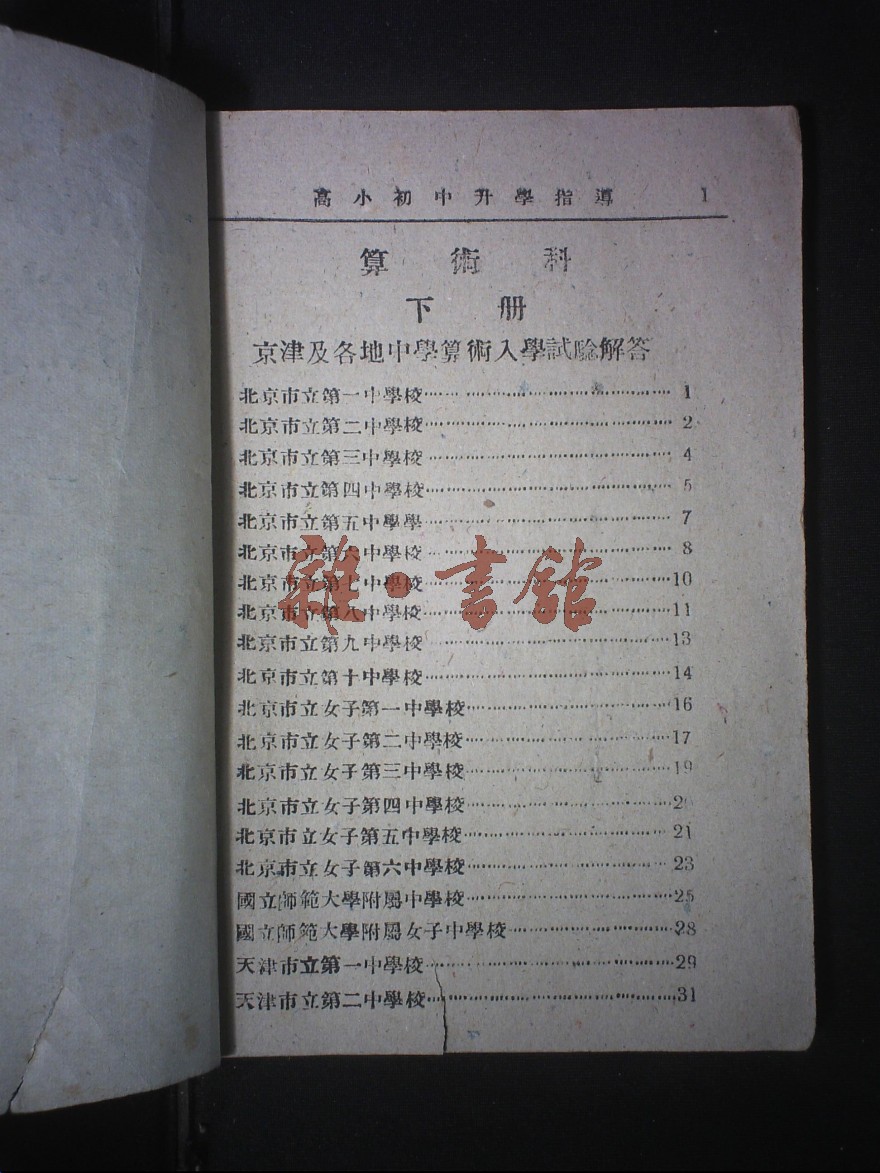 高小初中升學指導 1
算術科
下册
京津及各地中學算術入學試驗解答
北京市立第一中學校 1
北京市立第二中學校 2
北京市立第三中學校 4
北京市立第四中學校 5
北京市立第五中學學 7
北京市立第六中學校 8
北京市立第七中學校 10
北京市立第八中學校 11
北京市立第九中學校 13
北京市立第十中學校 14
北京市立女子第一中學校 16
北京市立女子第二中學校 17
北京市立女子第三中學校 19
北京市立女子第四中學校
北京市立女子第五中學校 21
北京市立女子第六中學校 23
國立師範大學附屬中學校 25
國立師範大學附屬女子中學校 28
天津市立第一中學校 29
天津市立第二中學校 31
雜·書館